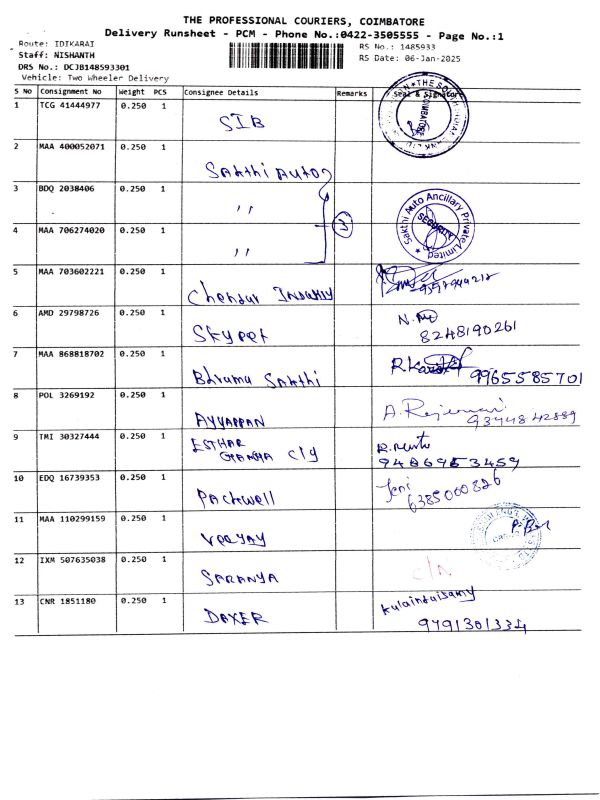 THE PROFESSIONAL COURIERS, COIMBATORE
Delivery Runsheet - PCM - Phone No.:0422-3505555 - Page No.:1
Route: IDIKARAI
RS No.: 1485933
Staff: NISHANTH
RS Date: 06-Jan-2025
DRS No.: DCJB148593301
Vehicle: Two Wheeler Delivery
S NO Consignment No Weight PCS Consignee Details Remarks Seal & Signature
1 TCG 41444977 0.250 1 SIB
2 MAA 400052071 0.250 1 Sakthi Auto
3 BDQ 2038406 0.250 1 ,, 3
4 MAA 706274020 0.250 1 ,,
Sakthi Auto Ancillary Private Limited
SECURITY
5 MAA 703602221 0.250 1
6 AMD 29798726 0.250 1 Skypet
8248190261
7 MAA 868818702 0.250 1 Bhrama Sakthi
99655 85701
8 POL 3269192 0.250 1 AYYAPPAN
9344842889
9 TMI 30327444 0.250 1 ESTHAR
9486953459
10 EDQ 16739353 0.250 1 Packwell Jeni
6385000826
11 MAA 110299159 0.250 1
12 IXM 507635038 0.250 1 SARANYA
13 CNR 1851180 0.250 1 DAXER
9791301334